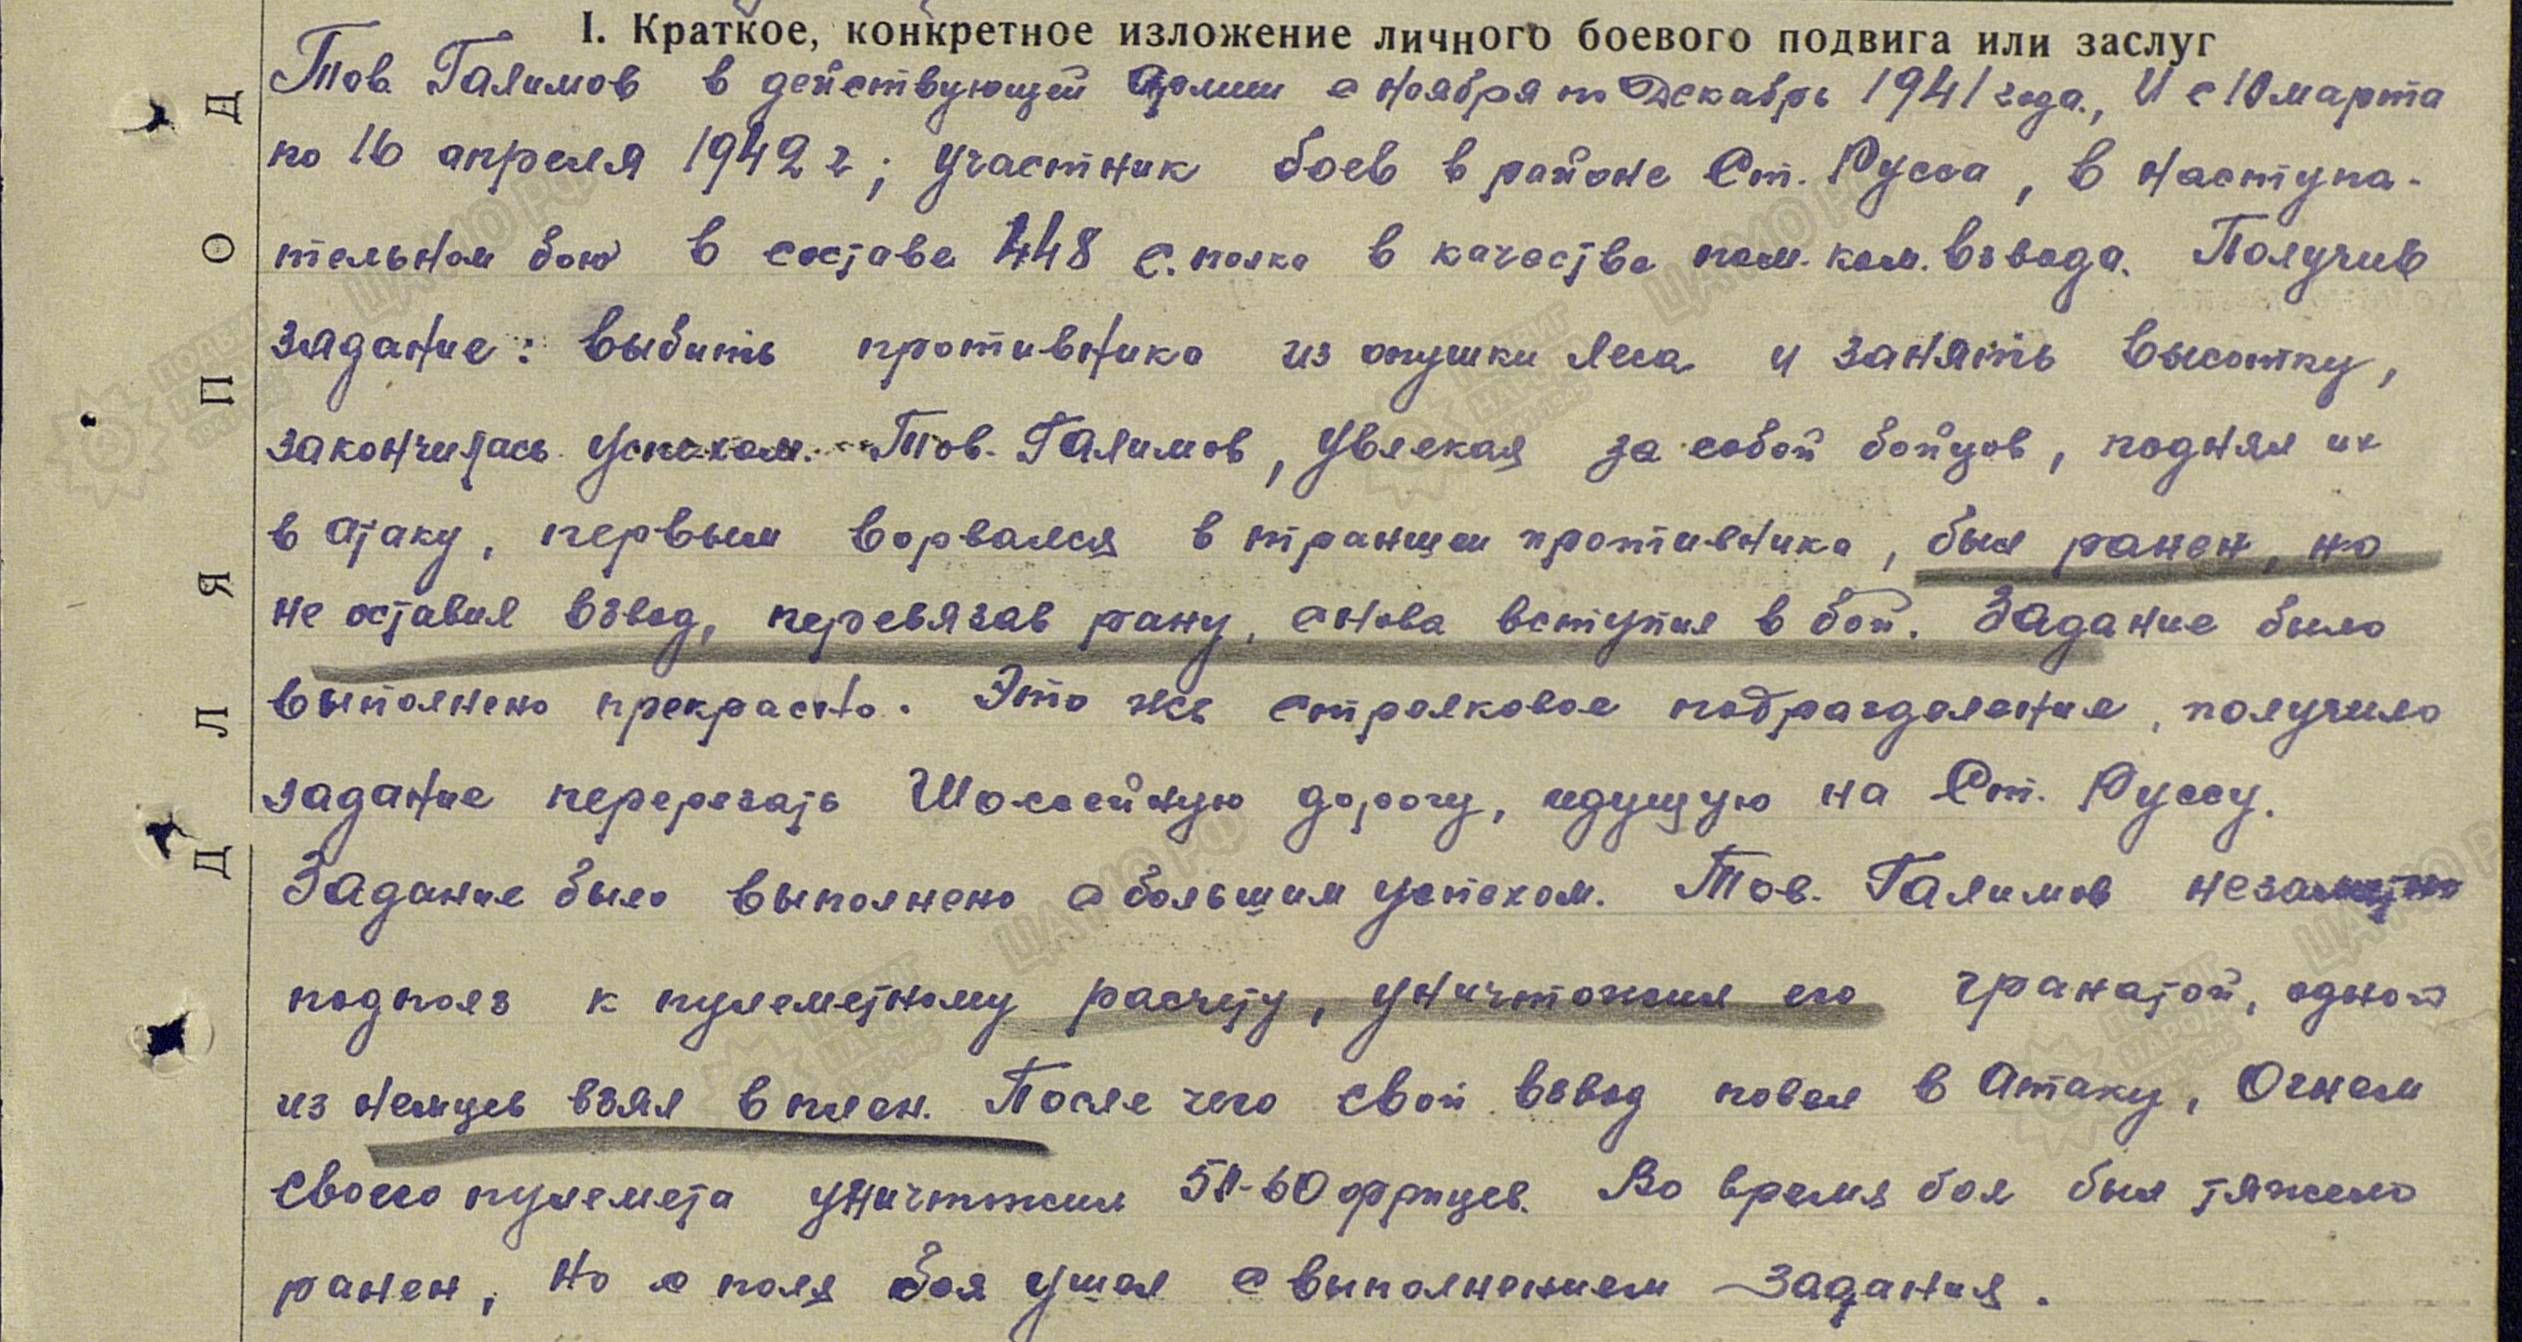 I. Краткое, конкретное изложение личного боевого подвига или заслуг
Тов. Галимов в действующей Армии с ноября по Декабрь 1941 года., И с 10 марта
по 16 апреля 1942 г; участник боев в районе Ст. Русса, в наступа-
тельном бою в составе 448 с. полка в качестве пом. ком. взвода. Получив
задание: выбить противника из опушки леса и занять высотку,
закончилась успехом. Тов. Галимов, увлекая за собой бойцов, поднял их
в атаку, первым ворвался в траншеи противника, был ранен, но
не оставил взвод, перевязав рану, снова вступил в бой. Задание было
выполнено прекрасно. Это же стрелковое подразделение, получило
задание перерезать Шоссейную дорогу, идущую на Ст. Руссу.
Задание было выполнено с большим успехом. Тов. Галимов незаметно
подполз к пулеметному расчету, уничтожил его гранатой, одного
из немцев взял в плен. После чего свой взвод повел в Атаку, Огнем
своего пулемета уничтожил 50-60 фрицев. Во время боя был тяжело
ранен, но с поля боя ушел с выполнением задания.
ДЛЯ ПОД
ЦАМО РФ
ПОДВИГ НАРОДА 1941-1945